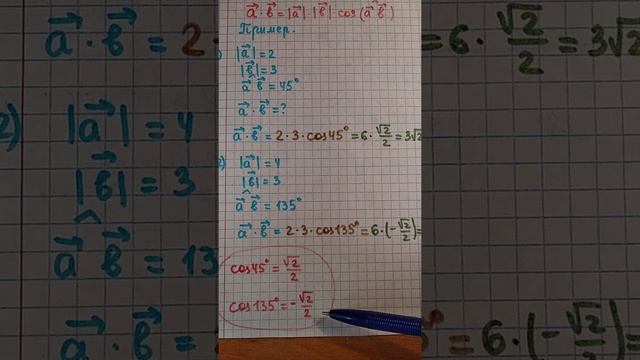 a⃗ · b⃗ = |a⃗| · |b⃗| · cos(a⃗ ^ b⃗)
Пример.
|a⃗| = 2
|b⃗| = 3
a⃗ ^ b⃗ = 45°
a⃗ · b⃗ = ?
a⃗ · b⃗ = 2 · 3 · cos45° = 6 · √2/2 = 3√2
2) |a⃗| = 4
|b⃗| = 3
a⃗ ^ b⃗ = 135°
a⃗ · b⃗ = 2 · 3 · cos135° = 6 · (-√2/2) =
cos45° = √2/2
cos135° = -√2/2